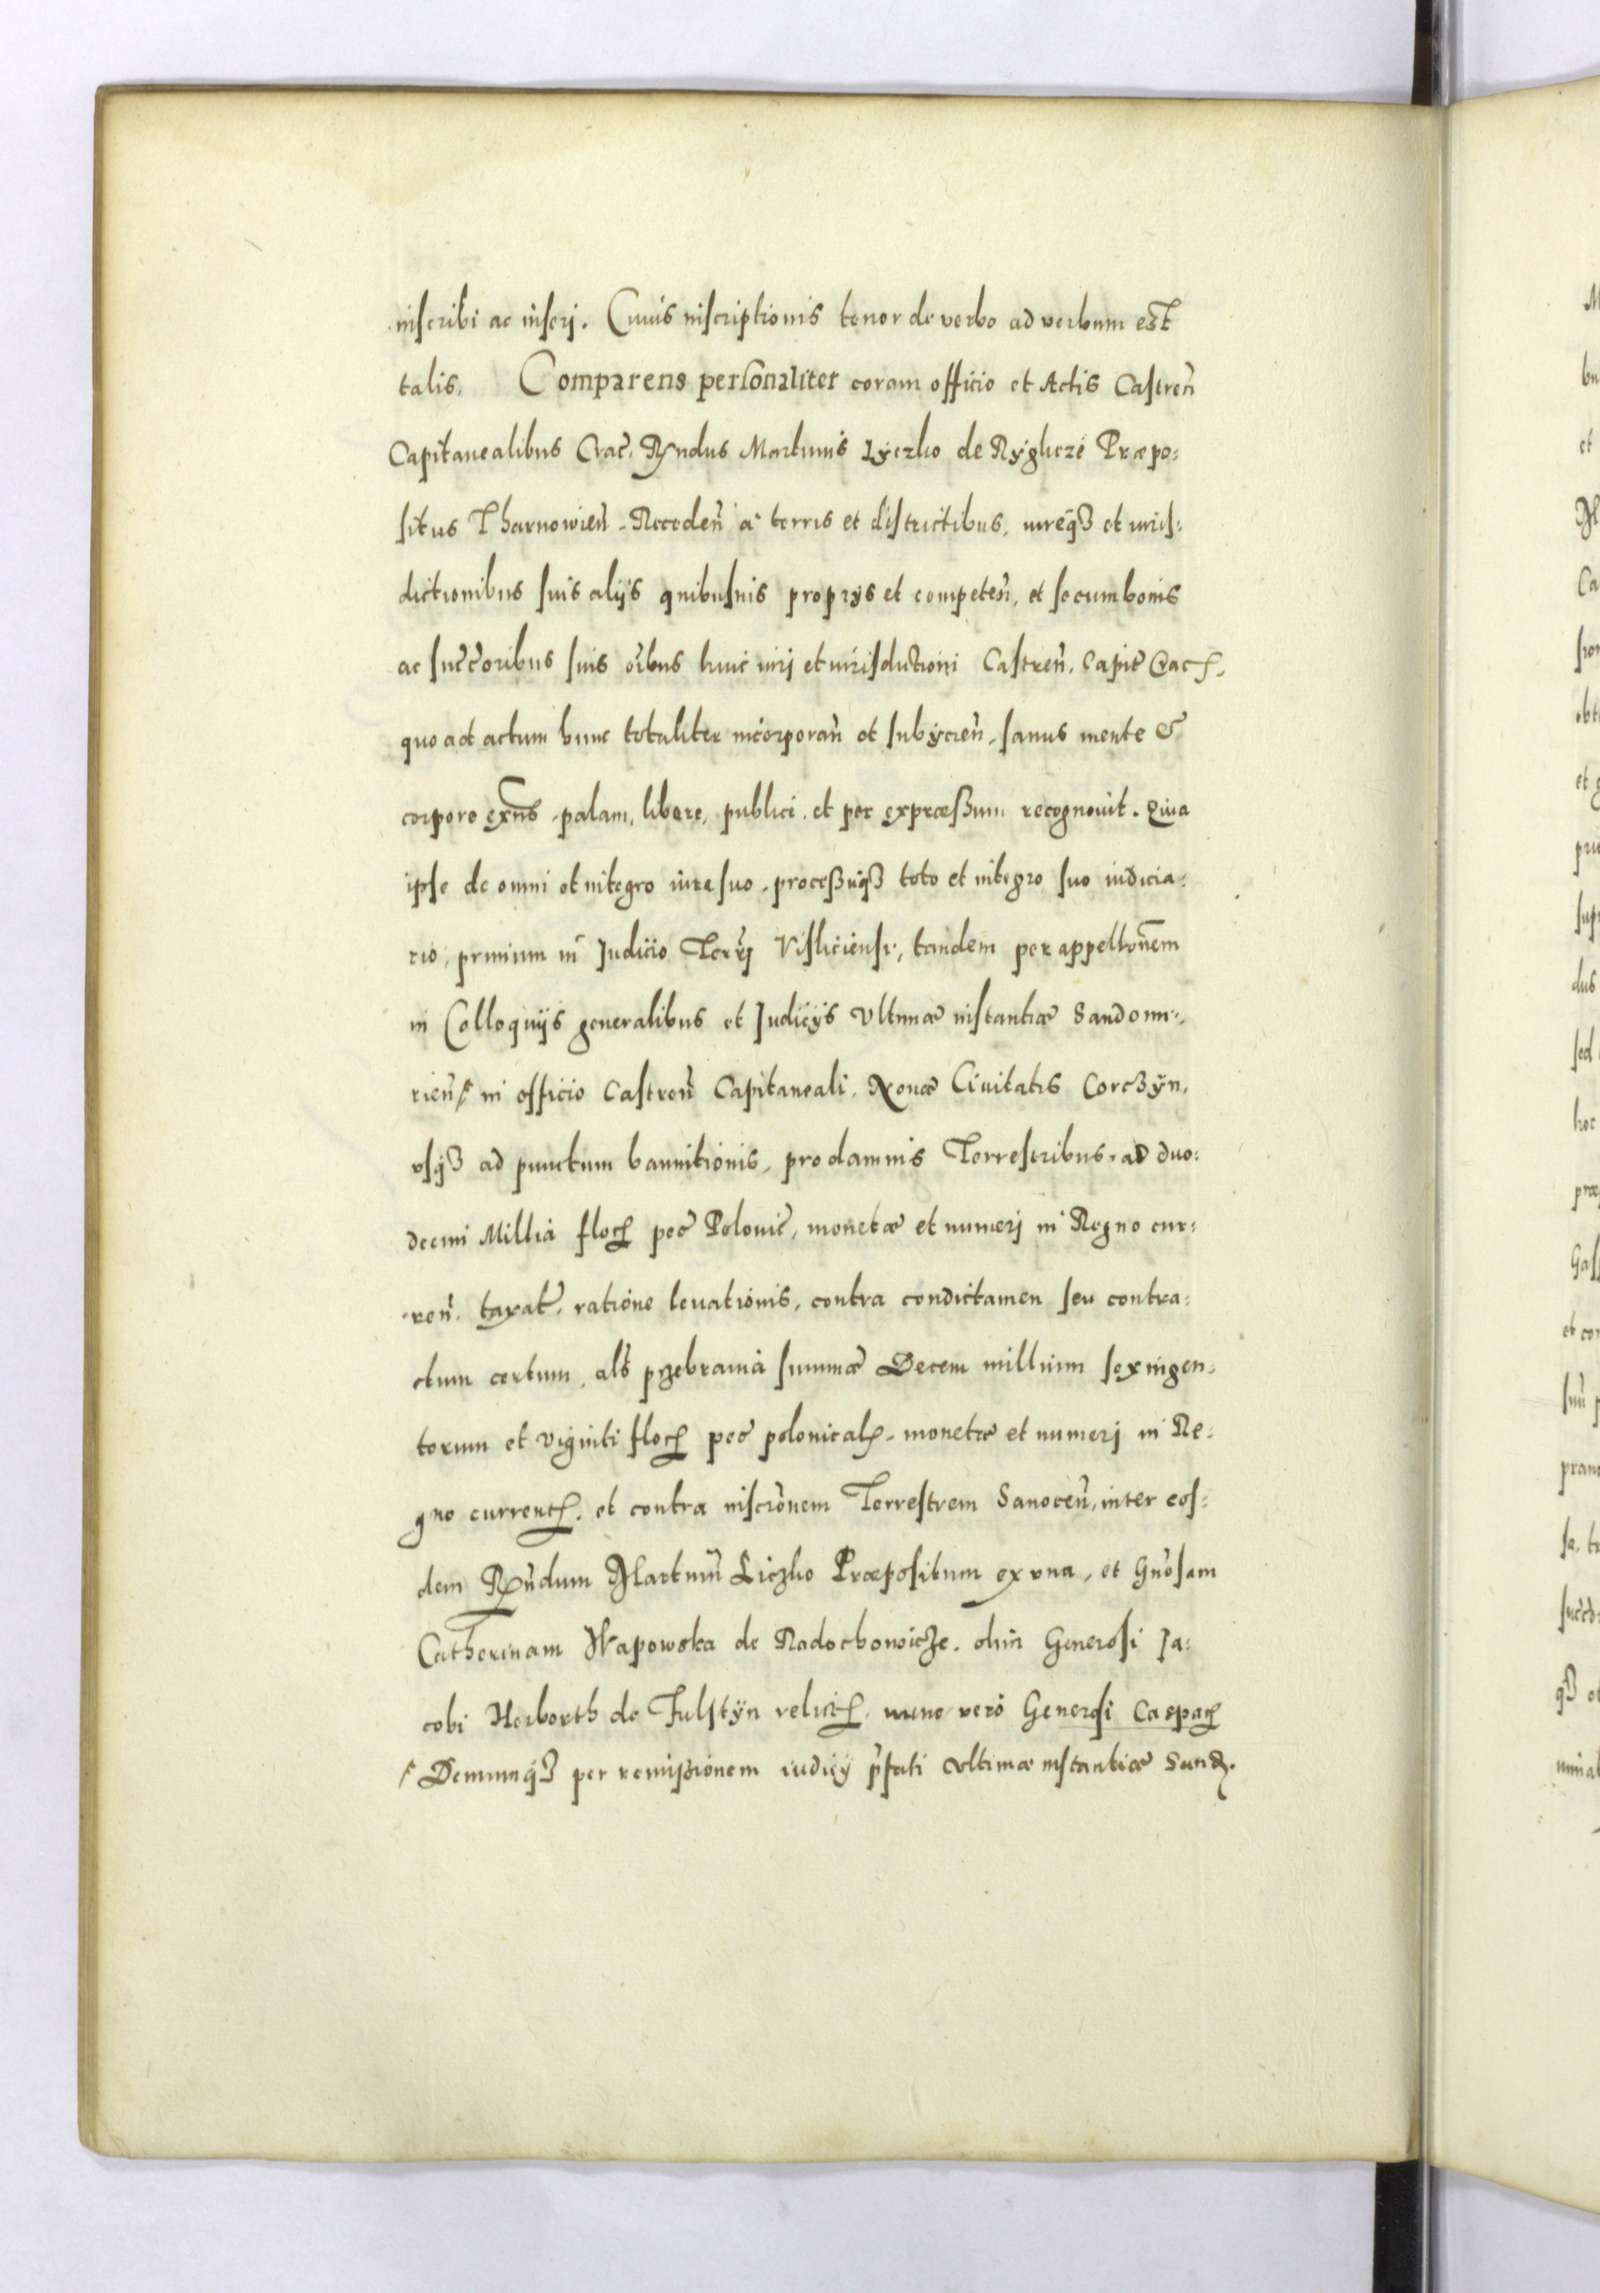 inscribi ac inserj. Cuius inscriptionis tenor de verbo ad verbum est
talis. Comparens personaliter coram officio et Actis Castreñ
Capitanealibus Crac̃. Rñdus Martinus Lyczko de Ryglicze Præpo:
situs Tharnowieñ. Recedeñ à terris et districtibus, iureq3 et iuris:
dictionibus suis alijs quibusuis proprijs et competeñ, et secum bonis
ac succ̃oribus suis oĩbus huic iurj et iurisdictioni Castreñ. Capit̃ Crac̃.
quo ad actum hunc totaliter incorporañ et subijcieñ, sanus mente &
corpore exñs, palam, libere, publicè, et per expræssum recognouit. Quia
ipse de omni et integro iure suo, processuq3 toto et integro suo iudicia:
rio, primum in Judicio Terrj Visliciensi, tandem per appellõnem
in Colloquijs generalibus et Judicijs vltimæ instantiæ Sandomi:
rieñ, in officio Castreñ Capitaneali. Nouæ Ciuitatis Corczyn.
vsq3 ad punctum bannitionis, pro damnis Terrestribus, ad duo:
decim Millia floꝝ pec̃ Polonic̃, monetæ et numerj in Regno cur:
reñ. taxat̃. ratione leuationis, contra condictamen seu contra:
ctum certum, als̃ przebrania summæ Decem millium sexingen:
torum et viginti floꝝ pec̃ polonicaꝝ. monetæ et numerj in Re:
gno currentꝭ. et contra inscrõnem Terrestrem Sanoceñ, inter eos:
dem Rñdum Martinũ Liczko Præpositum ex vna, et Gñosam
Catherinam Wapowska de Radochowicze. olim Generosi Ja:
cobi Herborth de Fulstÿn relictꝭ. nunc verò Generosi Casparꝭ
Demumq3 per remissionem iudicij p̃fati vltimæ instantiæ Sand.